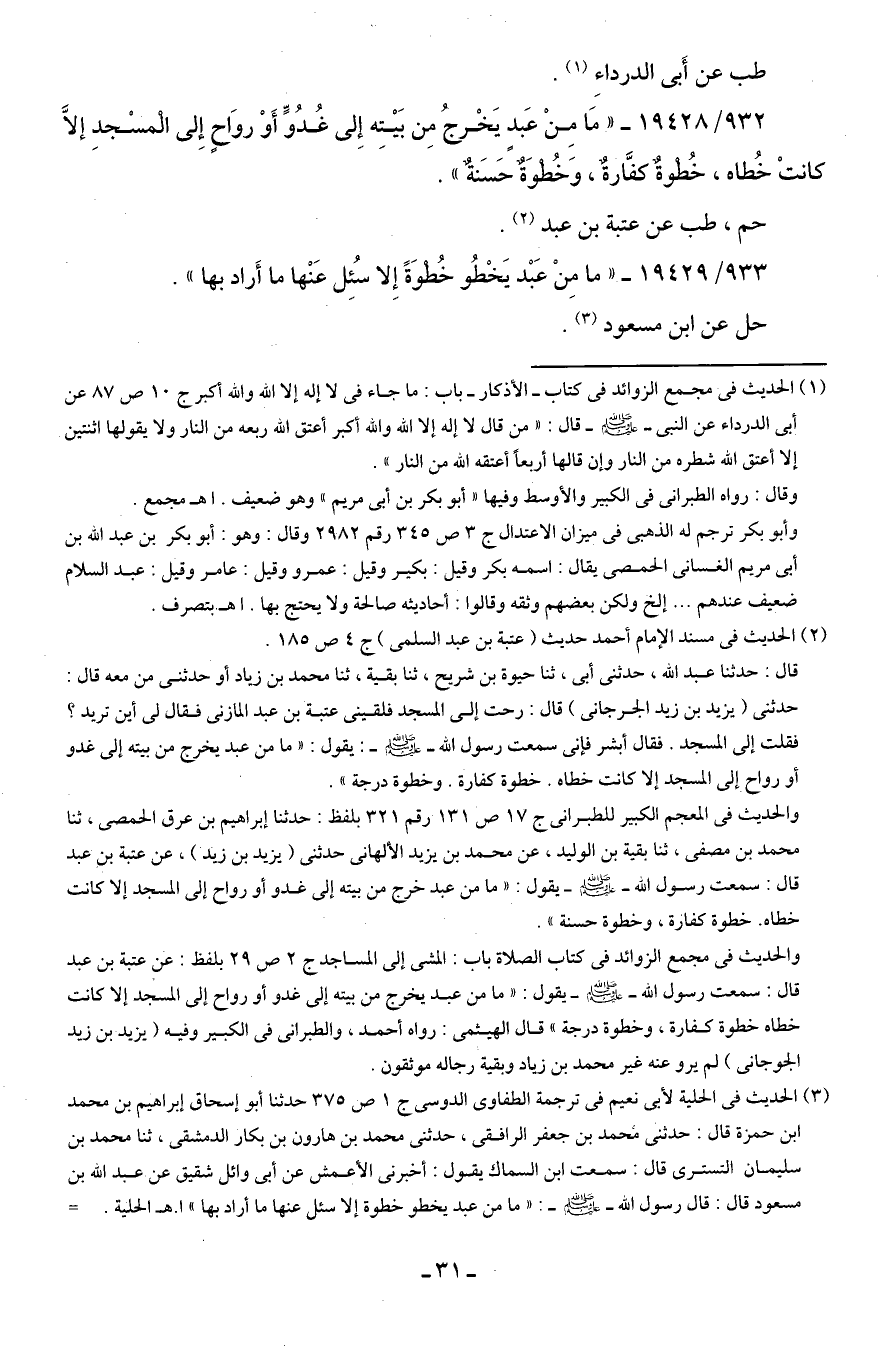 طب عن أَبى الدرداءِ (١) .
١٩٤٢٨/٩٣٢ ـ « مَا مِـنْ عَبدٍ يَخْـرجُ مِن بَيْـتِه إلى غُـدُوٍّ أَوْ روَاحٍ إلى الْمسْـجدِ إلاَّ
كانتْ خُطاه ، خُطْوةٌ كفَّارةٌ ، وَخُطْوَةٌ حَسَنَةٌ » .
حم ، طب عن عتبة بن عبد (٢) .
١٩٤٢٩/٩٣٣ ـ « ما مِنْ عَبْد يَخْطُو خُطْوَةً إلا سُئِل عَنْها ما أَراد بها » .
حل عن ابن مسعود (٣) .
(١) الحديث فى مجـمع الزوائد فى كتاب ـ الأذكار ـ باب : ما جـاء فى لا إله إلا الله والله أكبر ج ١٠ ص ٨٧ عن
أبى الدرداء عن النبى ـ ﷺ ـ قال : « من قال لا إله إلا الله والله أكبر أعتق الله ربعه من النار ولا يقولها اثنتين
إلا أعتق الله شطره من النار وإن قالها أربعاً أعتقه الله من النار » .
وقال : رواه الطبرانى فى الكبير والأوسط وفيها « أبو بكر بن أبى مريم » وهو ضعيف . ا هـ مجمع .
وأبو بكر ترجم له الذهبى فى ميزان الاعتدال ج ٣ ص ٣٤٥ رقم ٢٩٨٢ وقال : وهو : أبو بكر بن عبد الله بن
أبى مريم الغسـانى الحمـصى يقال : اسمـه بكر وقيل : بكيـر وقيل : عمـرو وقيل : عامـر وقيل : عبـد السلام
ضعيف عندهم ... إلخ ولكن بعضهم وثقه وقالوا : أحاديثه صالحة ولا يحتج بها . ا هـ بتصرف .
(٢) الحديث فى مسند الإمام أحمد حديث ( عتبة بن عبد السلمى ) ج ٤ ص ١٨٥ .
قال : حدثنا عـبد الله ، حدثنى أبى ، ثنا حيوة بن شريح ، ثنا بقية ، ثنا محمد بن زياد أو حدثنـى من معه قال :
حدثنى ( يزيد بن زيد الجـرجانى ) قال : رحت إلـى المسجد فلقينى عتبـة بن عبد المازنى فـقال لى أين تريد ؟
فقلت إلى المسجد . فقال أبشر فإنى سمعت رسول الله ـ ﷺ ـ : يقول : « ما من عبد يخرج من بيته إلى غدو
أو رواح إلى المسجد إلا كانت خطاه . خطوة كفارة . وخطوة درجة » .
والحديث فى المعجم الكبير للطبـرانى ج ١٧ ص ١٣١ رقم ٣٢١ بلفظ : حدثنا إبراهيم بن عرق الحمصى ، ثنا
محمد بن مصفى ، ثنا بقية بن الوليد ، عن محـمد بن يزيد الألهانى حدثنى ( يزيد بن زيد ) ، عن عتبة بن عبد
قال : سمعت رسـول الله ـ ﷺ ـ يقول : « ما من عبد خرج من بيته إلى غـدو أو رواح إلى المسجد إلا كانت
خطاه. خطوة كفارة ، وخطوة حسنة » .
والحديث فى مجمع الزوائد فى كتاب الصلاة باب : المشى إلى المسـاجد ج ٢ ص ٢٩ بلفظ : عن عتبة بن عبد
قال : سمعت رسول الله ـ ﷺ ـ يقول : « ما من عبـد يخرج من بيته إلى غدو أو رواح إلى المسجد إلا كانت
خطاه خطوة كـفارة ، وخطوة درجة » قـال الهيـثمى : رواه أحمـد ، والطبرانى فى الكبـير وفيـه ( يزيـد بن زيد
الجوجانى ) لم يرو عنه غير محمد بن زياد وبقية رجاله موثقون .
(٣) الحديث فى الحلية لأبى نعيم فى ترجمة الطفاوى الدوسى ج ١ ص ٣٧٥ حدثنا أبو إسحاق إبراهيم بن محمد
ابن حمزة قال : حدثنى محمد بن جعفر الرافـقى ، حدثنى محمد بن هارون بن بكار الدمشقى ، ثنا محمد بن
سليمـان التسترى قال : سمـعت ابن السماك يقـول : أخبرنى الأعـمش عن أبى وائل شقيق عن عـبد الله بن
مسعود قال : قال رسول الله ـ ﷺ ـ : « ما من عبد يخطو خطوة إلا سئل عنها ما أراد بها » ا.هـ الحلية . =
ـ ٣١ ـ